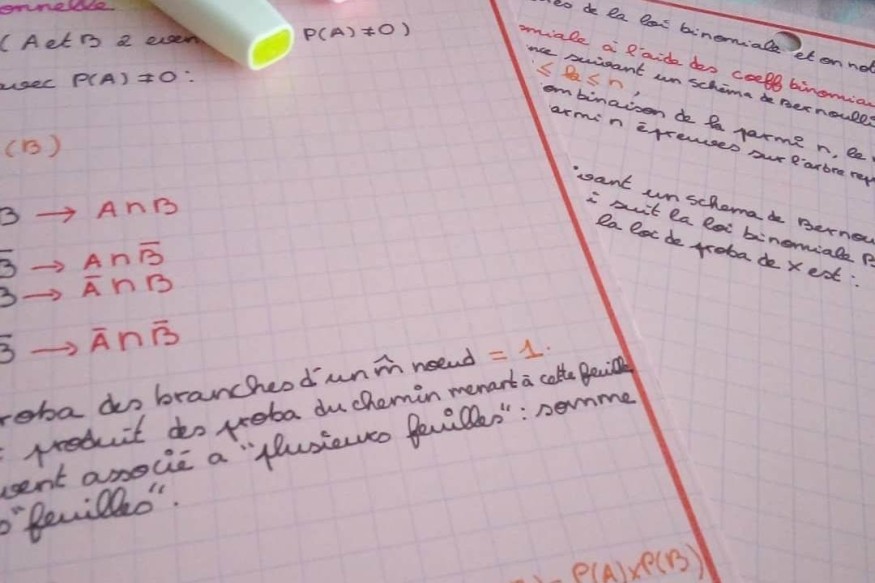 onnelle
(A et B 2 even P(A) ≠ 0)
avec P(A) ≠ 0 :
(B)
B → A∩B
B̄ → A∩B̄
B → Ā∩B
B̄ → Ā∩B̄
roba des branches d'un m̂ noeud = 1.
= produit des proba du chemin menant à cette feuille
vent associé a "plusieurs feuilles" : somme
s "feuilles".
P(A)xP(B)
de la loi binomiale et on not
omiale à l'aide des coeff binomiau
nce suivant un schéma de Bernoulli
≤ k ≤ n,
ombinaison de k parmi n, le
armi n épreuves sur l'arbre rep
ivant un schema de Bernou
i suit la loi binomiale B
la loi de proba de x est :